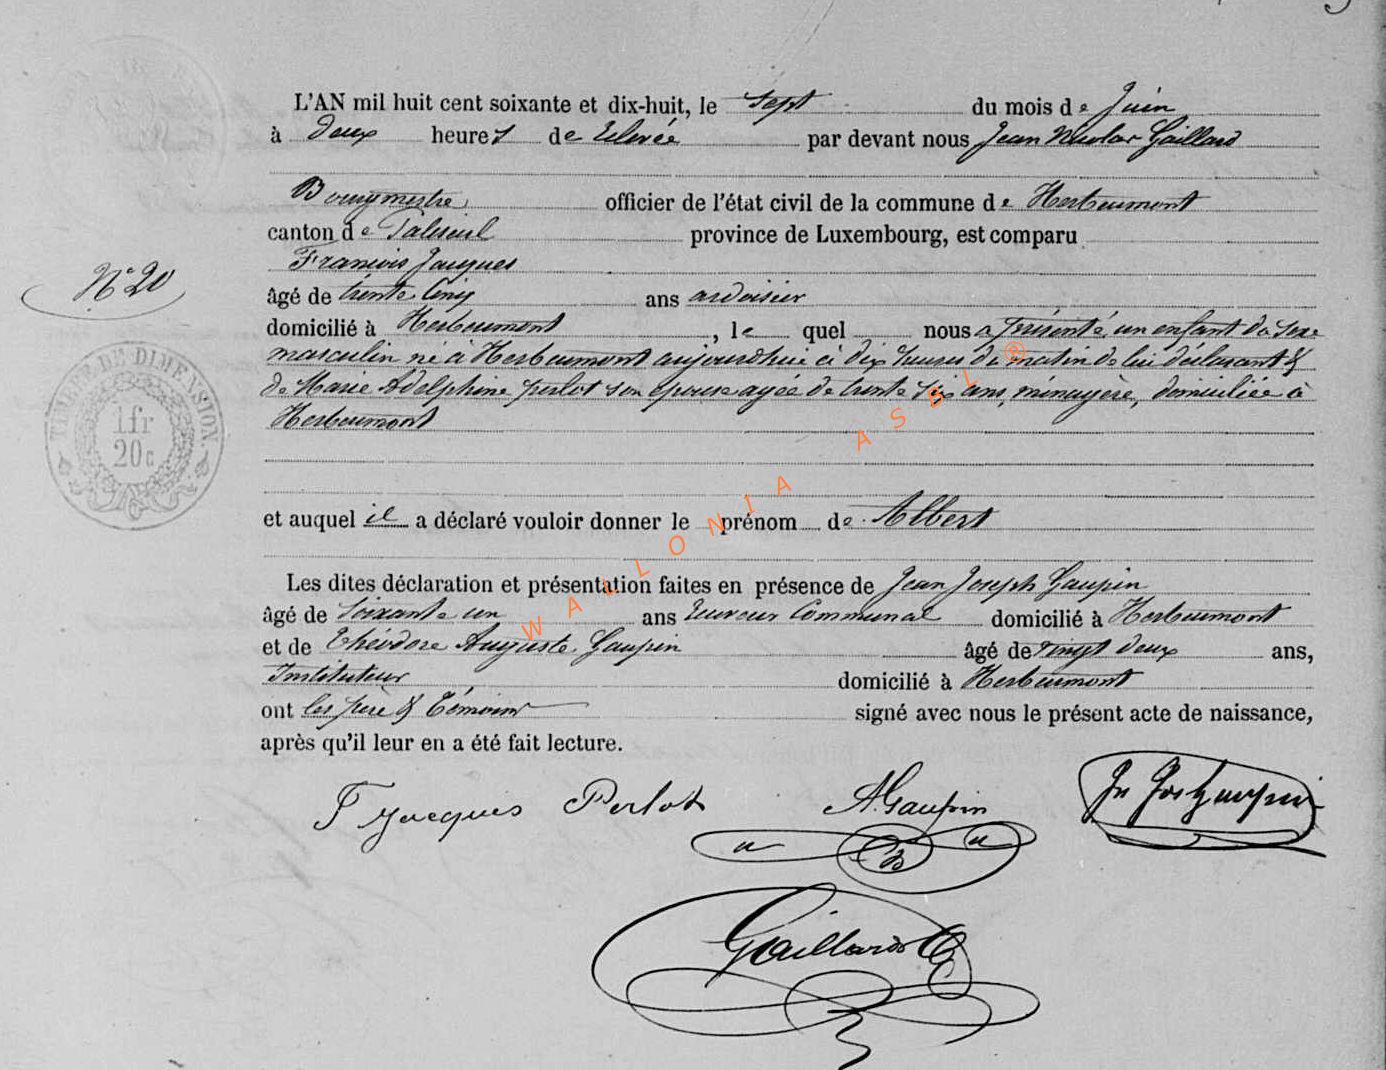 L'AN mil huit cent soixante et dix-huit, le sept du mois de Juin
à deux heures de relevée par devant nous Jean Nicolas Gaillard
Bourgmestre officier de l'état civil de la commune de Herbeumont
canton de Paliseul province de Luxembourg, est comparu
François Jacques
N° 20
âgé de trente cinq ans ardoisier
domicilié à Herbeumont, lequel nous a présenté un enfant du sexe
masculin né à Herbeumont aujourdhui à dix heures du matin de lui déclarant &
de Marie Adelphine perlot son épouse agée de trente six ans, ménagère, domiciliée à
Herbeumont
TIMBRE DE DIMENSION
1fr
20c
et auquel il a déclaré vouloir donner le prénom de Albert
Les dites déclaration et présentation faites en présence de Jean Joseph Gaupin
âgé de soixante un ans receveur Communal domicilié à Herbeumont
et de Théodore Auguste Gaupin âgé de vingt deux ans,
Instituteur domicilié à Herbeumont
ont les père & témoins signé avec nous le présent acte de naissance,
après qu'il leur en a été fait lecture.
F Jacques Perlot A. Gaupin Jn Jos Gaupin
Gaillard
WALLONIA ASBL ®